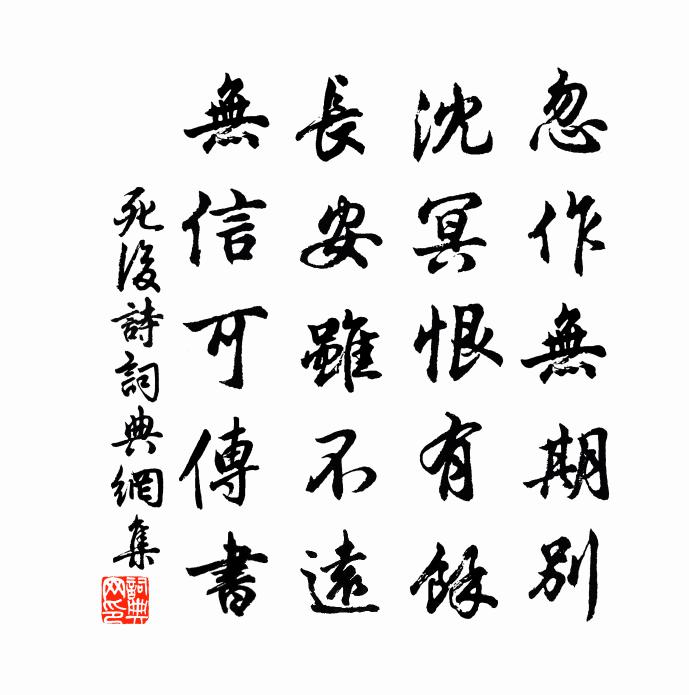 忽作無期別
沈冥恨有餘
長安雖不遠
無信可傳書
死後詩詞典網集
詞典網印